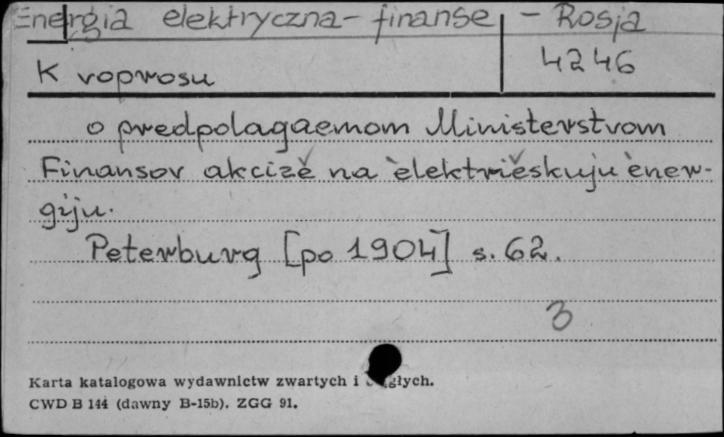 Energia elektryczna - finanse - Rosja
K voprosu 4246
o predpolagaemom Ministerstvom
Finansov akcizě na èlektričeskuju èner-
giju.
Peterburg [po 1904] s. 62.
3
Karta katalogowa wydawnictw zwartych i
CWD B 144 (dawny B-15b). ZGG 91.